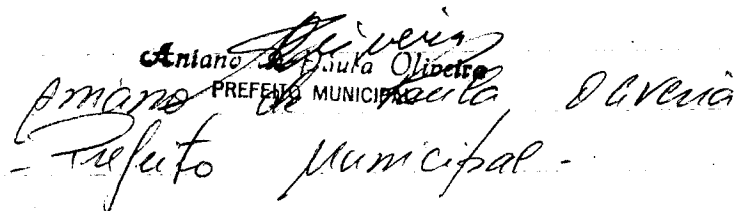 Oliveira
Aniano de Paula Oliveira
PREFEITO MUNICIPAL
Aniano de Paula Oliveira
- Prefeito Municipal -